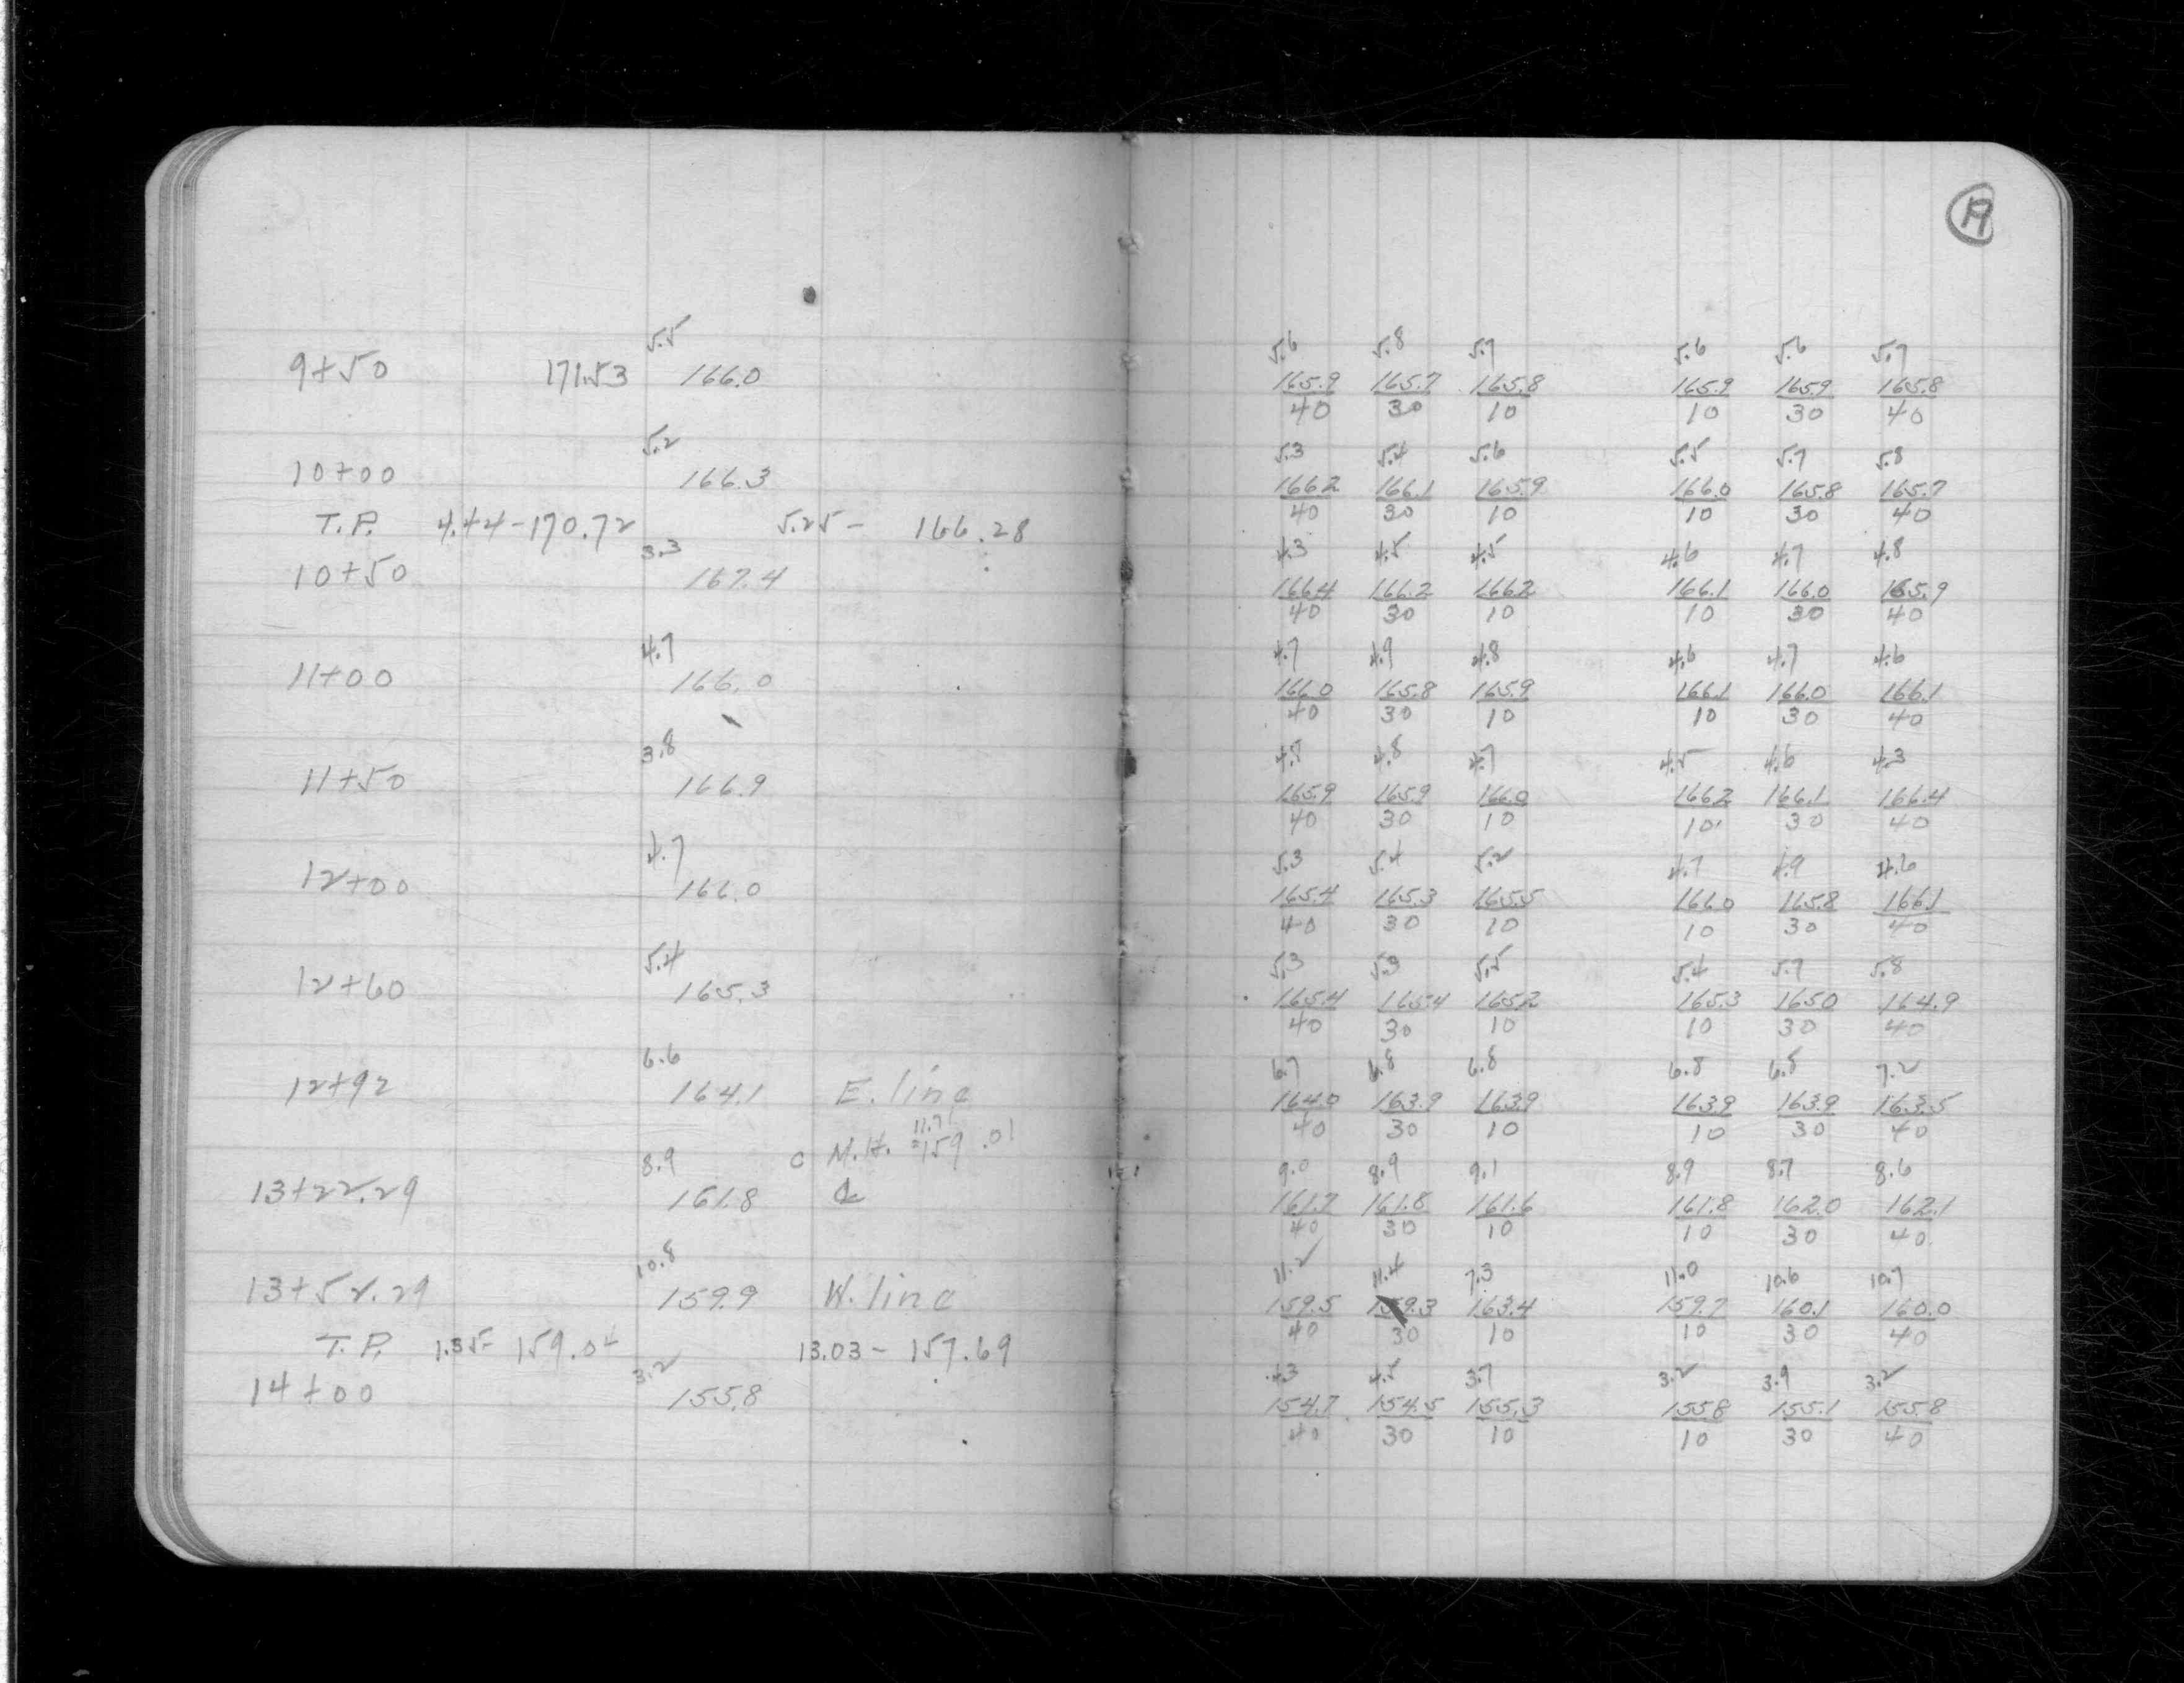 19
5.5 5.6 5.8 5.7 5.6 5.6 5.7
9+50 171.53 166.0 165.9 165.7 165.8 165.9 165.9 165.8
40 30 10 10 30 40
5.2 5.3 5.4 5.6 5.5 5.7 5.8
10+00 166.3 166.2 166.1 165.9 166.0 165.8 165.7
T.P. 4.44-170.72 5.25- 166.28 40 30 10 10 30 40
3.3 4.3 4.5 4.5 4.6 4.7 4.8
10+50 167.4 166.4 166.2 166.2 166.1 166.0 165.9
40 30 10 10 30 40
4.7 4.7 4.9 4.8 4.6 4.7 4.6
11+00 166.0 166.0 165.8 165.9 166.1 166.0 166.1
40 30 10 10 30 40
3.8 4.8 4.7 4.5 4.6 4.3
11+50 166.9 165.9 165.9 166.0 166.2 166.1 166.4
40 30 10 10 30 40
4.7 5.3 5.4 5.2 4.7 4.9 4.6
12+00 166.0 165.4 165.3 165.5 166.0 165.8 166.1
40 30 10 10 30 40
5.4 5.3 5.3 5.5 5.4 5.7 5.8
12+60 165.3 165.4 165.4 165.2 165.3 165.0 164.9
40 30 10 10 30 40
6.6 6.7 6.8 6.8 6.8 6.8 7.2
12+92 164.1 E. line 164.0 163.9 163.9 163.9 163.9 163.5
11.7 40 30 10 10 30 40
8.9 M.H. =159.01 9.0 8.9 9.1 8.9 8.7 8.6
13+22.29 161.8 ℄ 161.7 161.8 161.6 161.8 162.0 162.1
40 30 10 10 30 40
10.8 11.2 11.4 7.3 11.0 10.6 10.7
13+52.29 159.9 W. line 159.5 159.3 163.4 159.7 160.1 160.0
T.P. 1.35- 159.04 13.03- 157.69 40 30 10 10 30 40
3.2 4.3 4.5 3.7 3.2 3.9 3.2
14+00 155.8 154.7 154.5 155.3 155.8 155.1 155.8
40 30 10 10 30 40